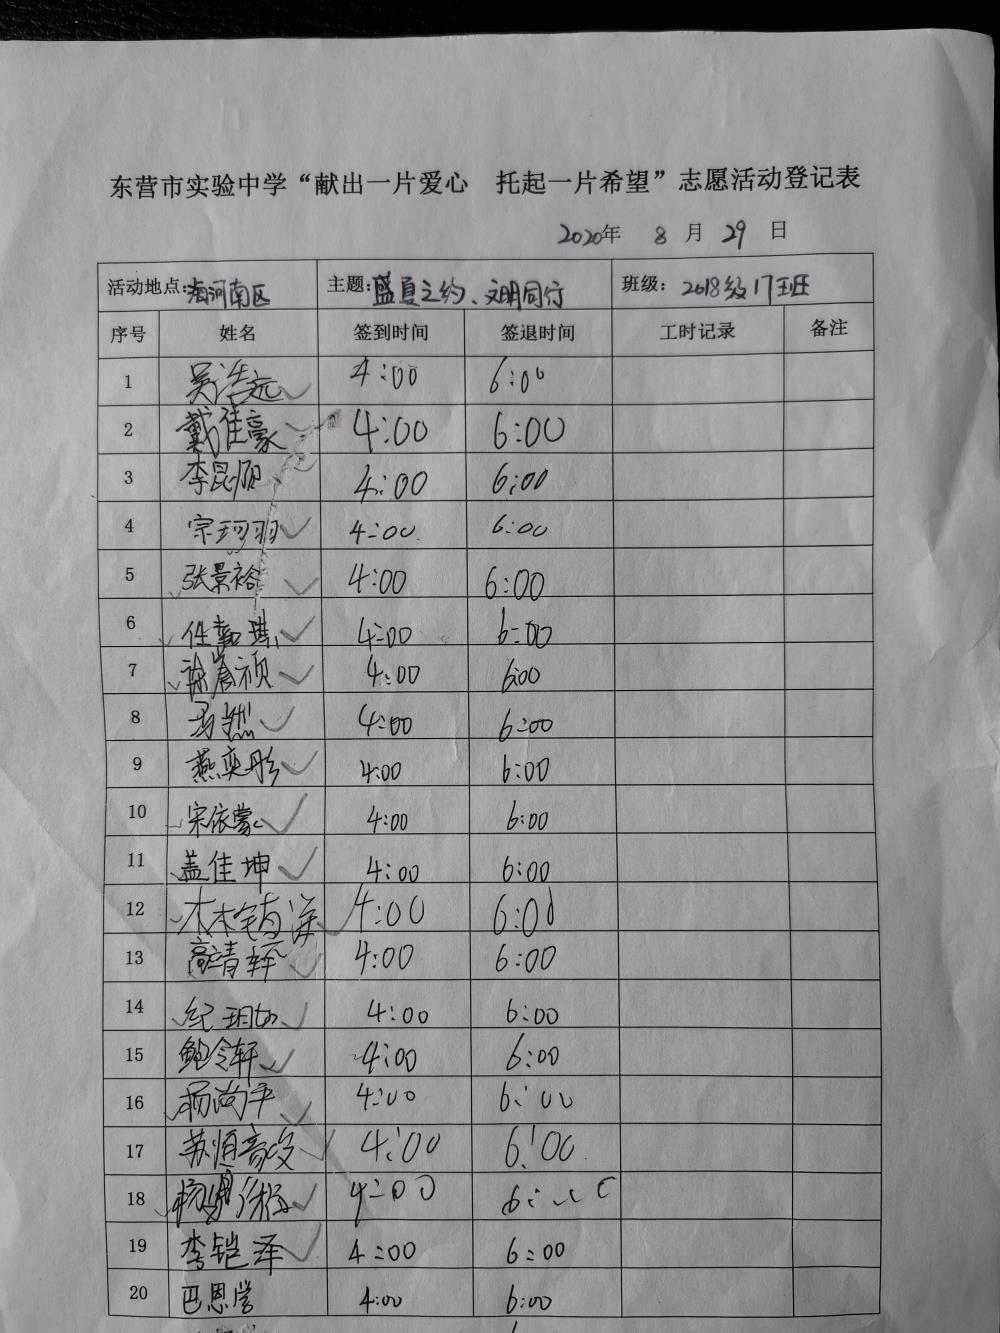 东营市实验中学“献出一片爱心 托起一片希望”志愿活动登记表
2020年 8 月 29 日
活动地点:海河南区 主题:盛夏之约、文明同行 班级: 2018级17班
序号 姓名 签到时间 签退时间 工时记录 备注
1 吴浩远 4:00 6:00
2 戴佳豪 4:00 6:00
3 李昆顺 4:00 6:00
4 宗珂羽 4:00 6:00
5 张景裕 4:00 6:00
6 任 琪 4:00 6:00
7 4:00 6:00
8 马然 4:00 6:00
9 燕奕彤 4:00 6:00
10 宋依蒙 4:00 6:00
11 盖佳坤 4:00 6:00
12 4:00 6:00
13 高靖轩 4:00 6:00
14 纪玥如 4:00 6:00
15 鲍令轩 4:00 6:00
16 杨尚平 4:00 6:00
17 苏恒 4:00 6:00
18 杨 4:00 6:00
19 李铠泽 4:00 6:00
20 巴恩学 4:00 6:00